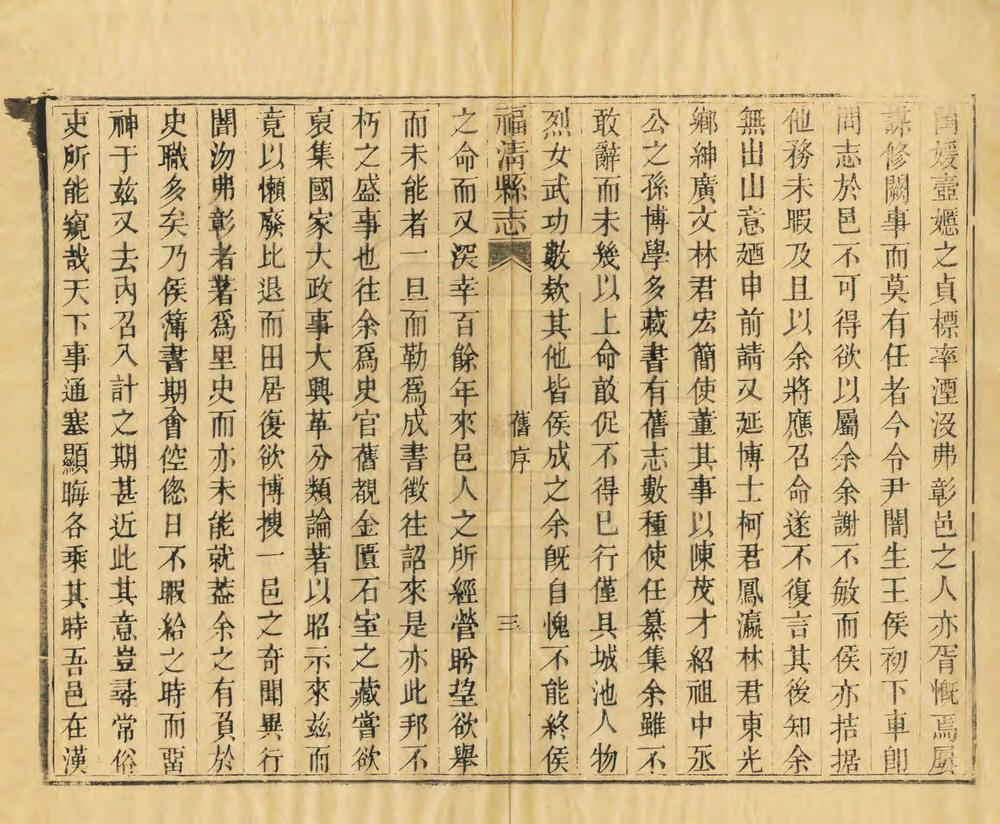 閨媛壼嬺之貞標率湮沒弗彰邑之人亦胥慨焉屢
謀修闕事而莫有任者今令尹闇生王侯初下車卽
問志於邑不可得欲以屬余余謝不敏而侯亦拮据
他務未暇及且以余將應召命遂不復言其後知余
無出山意廼申前請又延博士柯君鳳瀛林君東光
鄉紳廣文林君宏簡使董其事以陳茂才紹祖中丞
公之孫博學多藏書有舊志數種使任纂集余雖不
敢辭而未幾以上命敦促不得已行僅具城池人物
烈女武功數欵其他皆侯成之余旣自愧不能終侯
福清縣志 舊序 三
之命而又深幸百餘年來邑人之所經營盻望欲舉
而未能者一旦而勒爲成書徵往詔來是亦此邦不
朽之盛事也往余爲史官舊覩金匱石室之藏嘗欲
裒集國家大政事大興革分類論著以昭示來茲而
竟以懶廢比退而田居復欲博搜一邑之奇聞異行
闇汋弗彰者著爲里史而亦未能就葢余之有負於
史職多矣乃侯簿書期會倥偬日不暇給之時而畱
神于兹又去內召入計之期甚近此其意豈尋常俗
吏所能窺哉天下事通塞顯晦各乘其時吾邑在漢